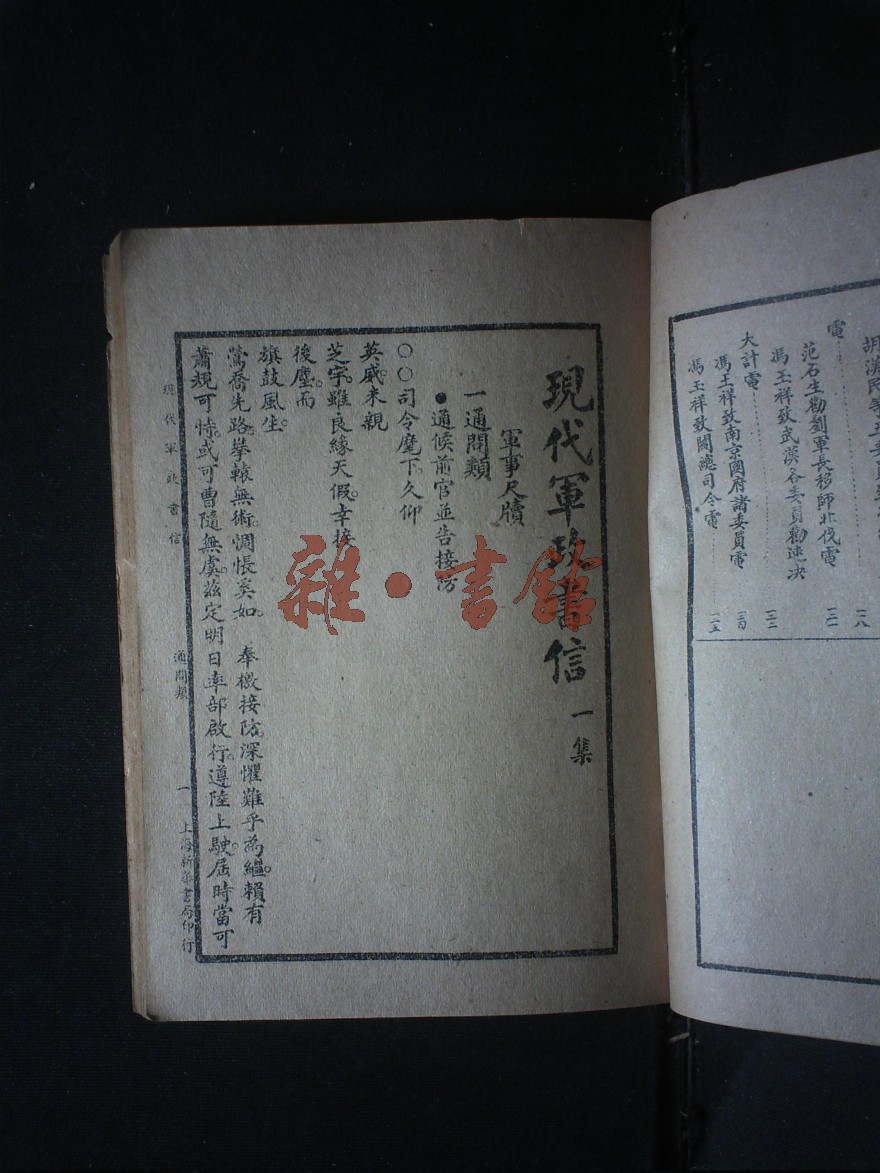 電
范石生勸劉軍長移師北伐電
馮玉祥致武漢各委員勸速決
大計電
馮玉祥致南京國府諸委員電
馮玉祥致閻總司令電
現代軍政書信 一集
軍事尺牘
一通問類
●通候前官並告接防
○○司令麾下。久仰
英威。未親
芝宇。雖良緣天假。幸接
後塵。而
旗鼓風生。
鶯喬先路。攀轅無術。惆悵奚如。 奉檄接防。深懼難乎為繼。賴有
蕭規可恃。或可曹隨無虞。茲定明日率部啟行。遵陸上駛。屆時當可
現代軍政書信 通問類 一 上海新華書局印行
雜·書館